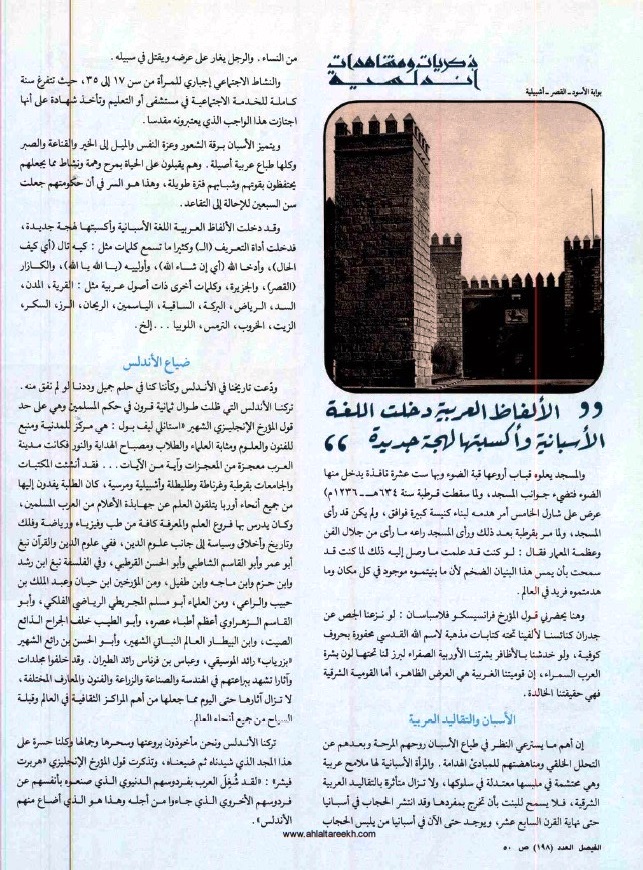 ذكريات ومشاهدات
أندلسية
بوابة الأسود _ القصر _ أشبيلية
,, الألفاظ العربية دخلت اللغة
الأسبانية وأكسبتها لهجة جديدة ,,
والمسجد يعلوه قباب أروعها قبة الضوء وبها ست عشرة نافذة يدخل منها
الضوء فتضيء جوانب المسجد، ولما سقطت قرطبة سنة ٦٣٤هـ _ ١٢٣٦م)
عرض على شارل الخامس أمر هدمه لبناء كنيسة كبيرة فوافق ، ولم يكن قد رأى
المسجد، ولما مر بقرطبة بعد ذلك ورأى المسجد راعه ما رأى من جلال الفن
وعظمة المعمار فقال : لو كنت قد علمت ما وصل إليه ذلك لما كنت قد
سمحت بأن يمس هذا البنيان الضخم لأن ما بنيتموه موجود في كل مكان وما
هدمتموه فريد في العالم.
وهنا يحضرني قول المؤرخ فرانسيسكو فلاسباسان : لو نزعنا الجص عن
جدران كنائسنا لألفينا تحته كتابات مذهبة لاسم الله القدسي محفورة بحروف
كوفية، ولو خدشنا بالأظافر بشرتنا الأوربية الصفراء لبرز لنا تحتها لون بشرة
العرب السمراء، إن قوميتنا الغربية هي العرض الظاهر، أما القومية الشرقية
فهي حقيقتنا الخالدة.
الأسبان والتقاليد العربية
إن أهم ما يسترعي النظر في طباع الأسبان روحهم المرحة وبعدهم عن
التحلل الخلقي ومناهضتهم للمبادئ الهدامة . والمرأة الأسبانية لها ملامح عربية
وهي محتشمة في ملبسها معتدلة في سلوكها، ولا تزال متأثرة بالتقاليد العربية
الشرقية، فلا يسمح للبنت بأن تخرج بمفردها وقد انتشر الحجاب في أسبانيا
حتى نهاية القرن السابع عشر، ويوجد حتى الآن في أسبانيا من يلبس الحجاب
من النساء. والرجل يغار على عرضه ويقتل في سبيله .
والنشاط الاجتماعي إجباري للمرأة من سن ١٧ إلى ٣٥، حيث تتفرغ سنة
كاملة للخدمة الاجتماعية في مستشفى أو التعليم وتأخذ شهادة على أنها
اجتازت هذا الواجب الذي يعتبرونه مقدسا.
ويتميز الأسبان برقة الشعور وعزة النفس والميل إلى الخير والقناعة والصبر
وكلها طباع عربية أصيلة . وهم يقبلون على الحياة بمرح وهمة ونشاط مما يجعلهم
يحتفظون بقوتهم وشبابهم فترة طويلة، وهذا هو السر في أن حكومتهم جعلت
سن السبعين للإحالة إلى التقاعد.
وقد دخلت الألفاظ العربية اللغة الأسبانية وأكسبتها لهجة جديدة،
فدخلت أداة التعريف (الـ) وكثيرا ما تسمع كلمات مثل : كيه تال (أي كيف
الحال)، وأدخا الله (أي إن شاء الله)، وأولييه (يا الله يا الله)، والكازار
(القصر)، والجزيرة، وكلمات أخرى ذات أصول عربية مثل : القرية، المدن،
السد، الرياض، البركة، الساقية، الياسمين، الريحان، الرز، السكر،
الزيت، الخروب، الترمس، اللوبيا ... إلخ.
ضياع الأندلس
ودّعت تاريخنا في الأندلس وكأننا كنا في حلم جميل وددنا لو لم نفق منه .
تركنا الأندلس التي ظلت طوال ثمانية قرون في حكم المسلمين وهي على حد
قول المؤرخ الإنجليزي الشهير «استانلي ليف بول : هي مركز للمدنية ومنبع
للفنون والعلوم ومثابة العلماء والطلاب ومصباح الهداية والنور فكانت مدينة
العرب معجزة من المعجزات وآية من الآيات ... فقد أنشئت المكتبات
والجامعات بقرطبة وغرناطة وطليطلة وأشبيلية ومرسية، كان الطلبة يفدون إليها
من جميع أنحاء أوربا يتلقون العلم عن جهابذة الأعلام من العرب المسلمين،
وكان يدرس بها فروع العلم والمعرفة كافة من طب وفيزياء ورياضة وفلك
وتاريخ وأخلاق وسياسة إلى جانب علوم الدين، ففي علوم الدين والقرآن نبغ
أبو عمر وأبو القاسم الشاطبي وأبو الحسن القرطبي، وفي الفلسفة نبغ ابن رشد
وابن حزم وابن ماجه وابن طفيل، ومن المؤرخين ابن حيان وعبد الملك بن
حبيب والراعي، ومن العلماء أبو مسلم المجريطي الرياضي الفلكي، وأبو
القاسم الزهراوي أعظم أطباء عصره، وأبو الطيب خلف الجراح الذائع
الصيت، وابن البيطار العالم النباتي الشهير، وأبو الحسن بن رائع الشهير
«بزرياب» رائد الموسيقى، وعباس بن فرناس رائد الطيران. وقد خلفوا مجلدات
وآثارا تشهد ببراعتهم في الهندسة والصناعة والزراعة والفنون والمعارف المختلفة،
لا تزال آثارها حتى اليوم مما جعلها من أهم المراكز الثقافية في العالم وقبلة
السياح من جميع أنحاء العالم.
تركنا الأندلس ونحن مأخوذون بروعتها وسحرها وجمالها وكلنا حسرة على
هذا المجد الذي شيدناه ثم ضيعناه، وتذكرت قول المؤرخ الإنجليزي «هربرت
فيشر» : «لقد شُغِلَ العرب بفردوسهم الدنيوي الذي صنعوه بأنفسهم عن
فردوسهم الأخروي الذي جاءوا من أجله وهذا هو الذي أضاع منهم
الأندلس».
www.ahlaltareekh.com
الفيصل العدد (١٩٨) ص ٥٠